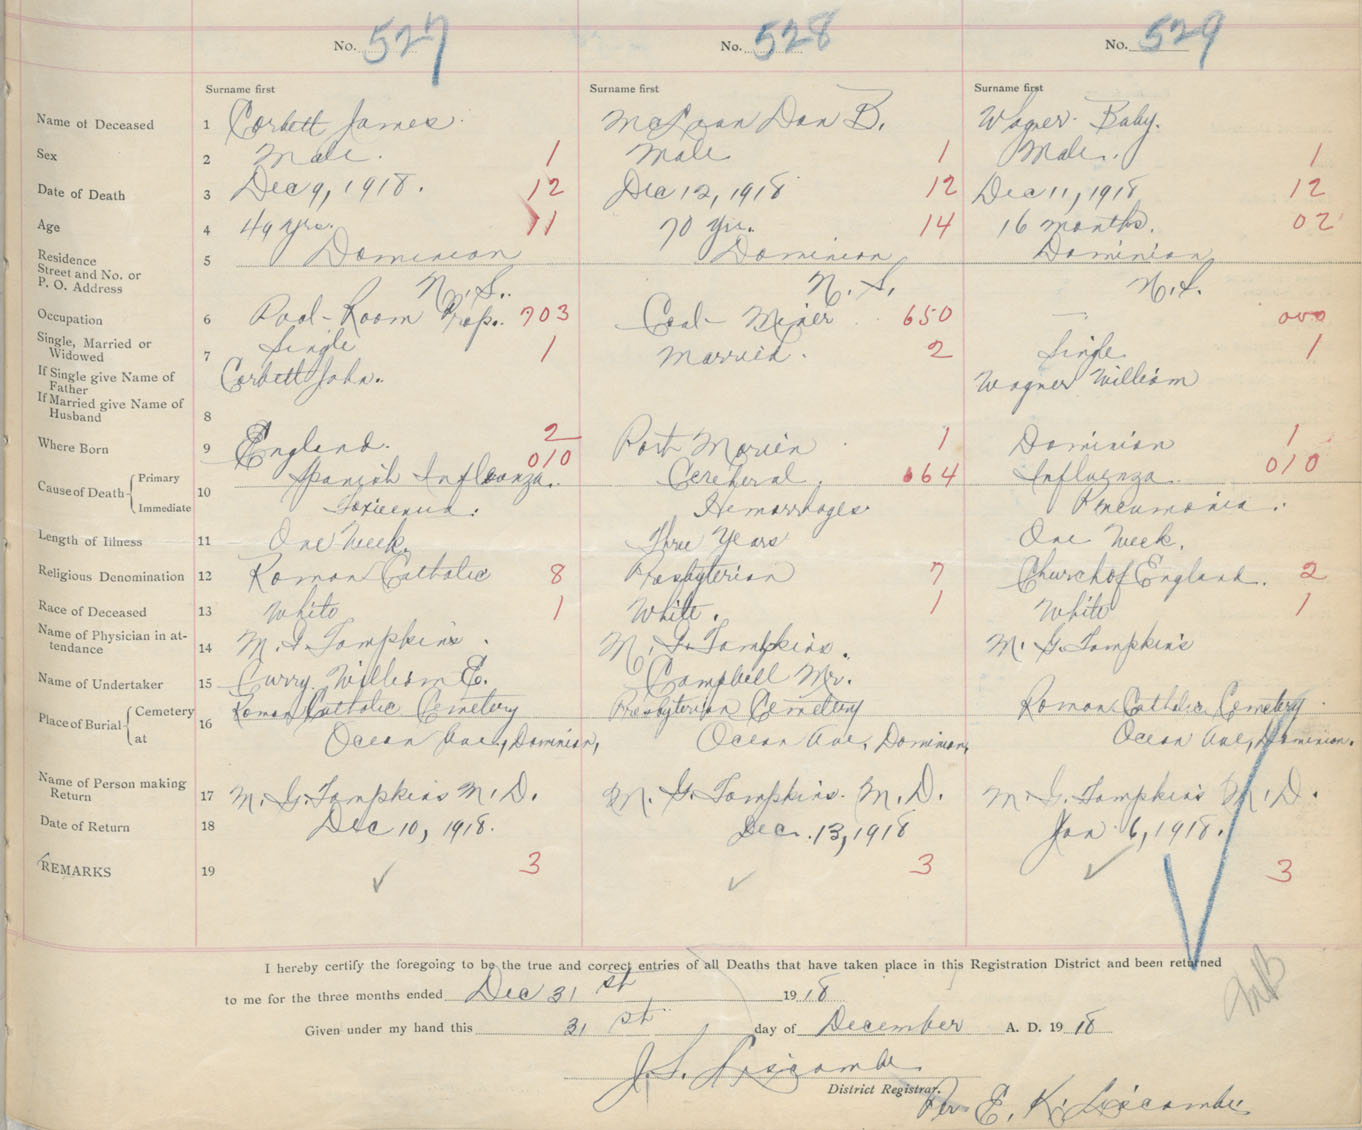 No. 527 No. 528 No. 529
Surname first Surname first Surname first
Name of Deceased 1 Corbett James. McLean Dan B. Wagner Baby.
Sex 2 Male. 1 Male 1 Male. 1
Date of Death 3 Dec 9, 1918. 12 Dec 12, 1918 12 Dec 11, 1918 12
Age 4 49 yrs. 11 70 yrs. 14 16 months. 02
Residence
Street and No. or
P. O. Address 5 Dominion Dominion Dominion
N. S. N. S. N. S.
Occupation 6 Pool-Room Prop. 703 Coal Miner 650 — 000
Single, Married or
Widowed 7 Single 1 Married. 2 Single 1
If Single give Name of
Father Corbett John. Wagner William
If Married give Name of
Husband 8
Where Born 9 England. 2 Port Morien 1 Dominion 1
Cause of Death Primary 10 Spanish Influenza. 010 Cerebral. 064 Influenza. 010
Immediate Toxicemia. Hemorrhages Pneumonia.
Length of Illness 11 One Week. Three Years One Week.
Religious Denomination 12 Roman Catholic 8 Presbyterian 7 Church of England. 2
Race of Deceased 13 White 1 White. 1 White 1
Name of Physician in at-
tendance 14 M. G. Tompkins. M. G. Tompkins. M. G. Tompkins
Name of Undertaker 15 Curry William E. Campbell Mr.
Place of Burial Cemetery 16 Roman Catholic Cemetery Presbyterian Cemetery Roman Catholic Cemetery
at Ocean Ave, Dominion, Ocean Ave, Dominion, Ocean Ave, Dominion.
Name of Person making
Return 17 M. G. Tompkins M. D. M. G. Tompkins. M. D. M. G. Tompkins M. D.
Date of Return 18 Dec 10, 1918. Dec. 13, 1918 Jan 6, 1918.
REMARKS 19 3 3 3
I hereby certify the foregoing to be the true and correct entries of all Deaths that have taken place in this Registration District and been returned
to me for the three months ended Dec 31st 1918
Given under my hand this 31st day of December A. D. 1918
J. S. Liscombe
District Registrar.
Per E. K. Liscombe